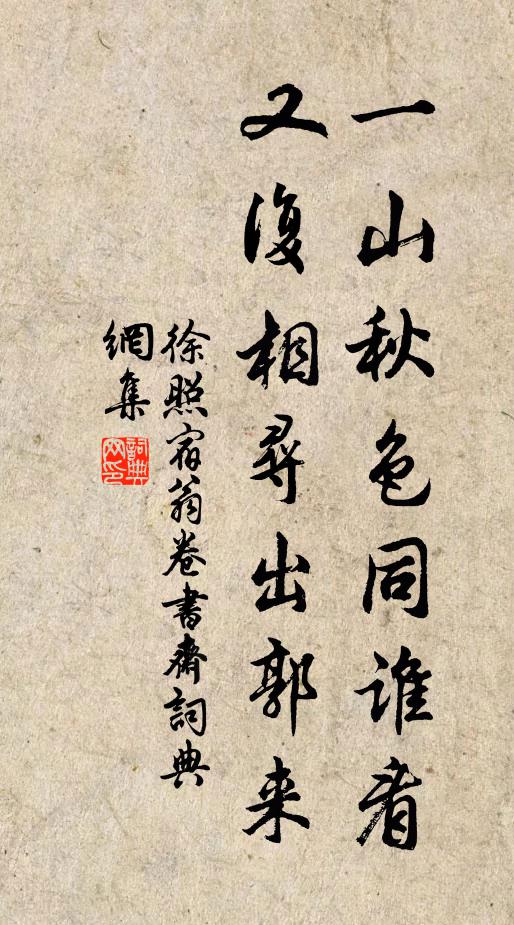 一山秋色同谁看
又復相尋出郭来
徐照宿翁卷書齋詞典
網集
詞典网印